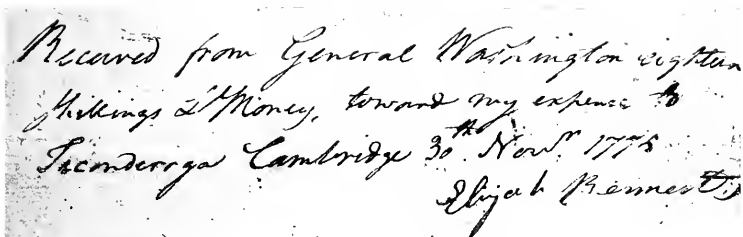 Received from General Washington eighteen
shillings Money, toward my expence to
Ticonderoga Cambridge 30th Novr 1775
Elijah Bennet